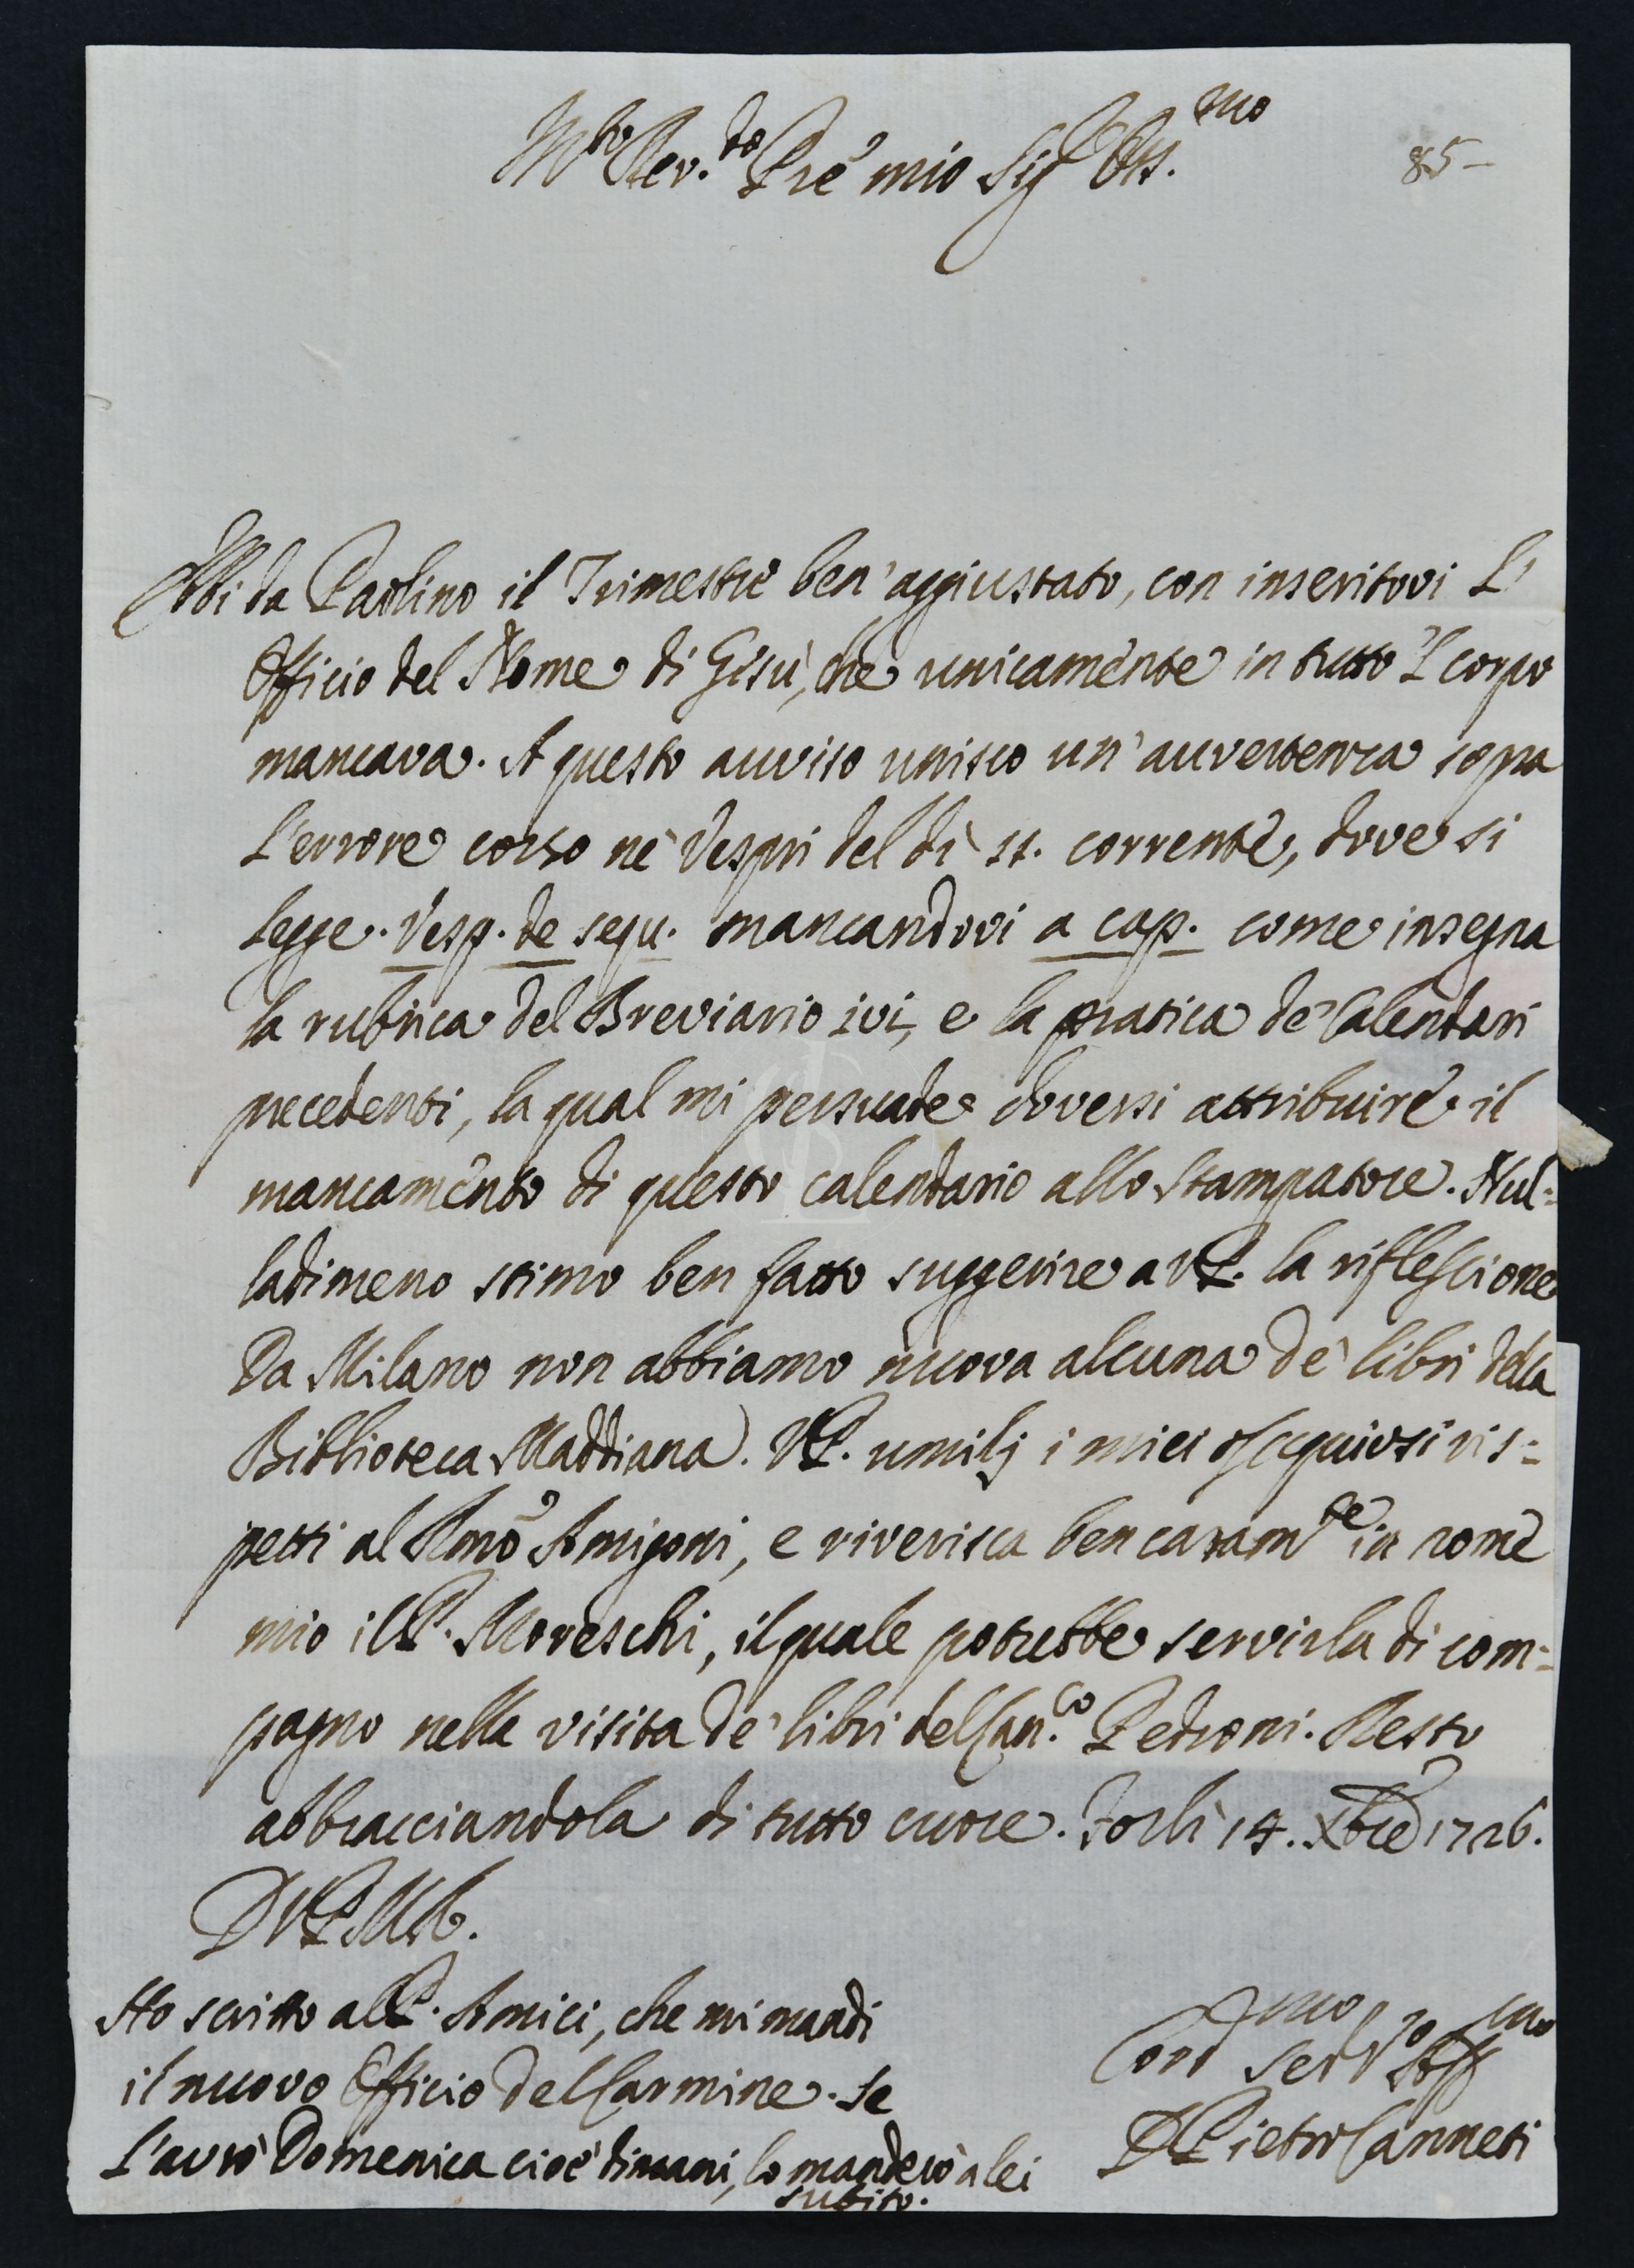 M.to Rev.do Pre mio Sig.r Oss.mo
85-
Ebbi da Paolino il Trimestre ben'aggiustato, con inseritovi l'
Officio del Nome di Giesù, che unicamente in tutto 'l corpo
mancava. A questo avviso unisco un'avvertenza sopra
l'errore corso ne' Vespri del dì 11. corrente, dove si
legge. Vesp. de sequ. mancandovi a cap. come insegna
la rubrica del Breviario ivi, e la pratica de' Calendari
precedenti, la qual mi persuade doversi attribuire il
mancamento di questo calendario allo Stampatore. Nul=
ladimeno stimo ben fatto suggerire a VP. la riflessione
Da Milano non abbiamo nuova alcuna de' libri della
Biblioteca Maddiana. VP. umilj i miei ossequiosi ris=
petti al Rmo Amigoni, e riverisca ben caram.te in nome
mio il P. Moreschi, il quale potrebbe servirla di com=
pagno nella visita de' libri del Can.co Petroni. Resto
abbracciandola di tutto cuore. Forlì 14. Xbre 1726.
DVPMR.
Ho scritto al P. Amici, che mi mandi
il nuovo Officio del Carmine. Se
l'avrò Domenica cioè dimani, lo manderò a lei
subito.
Dmo
Cord Serv.o Oss.mo
D Pietro Canneti